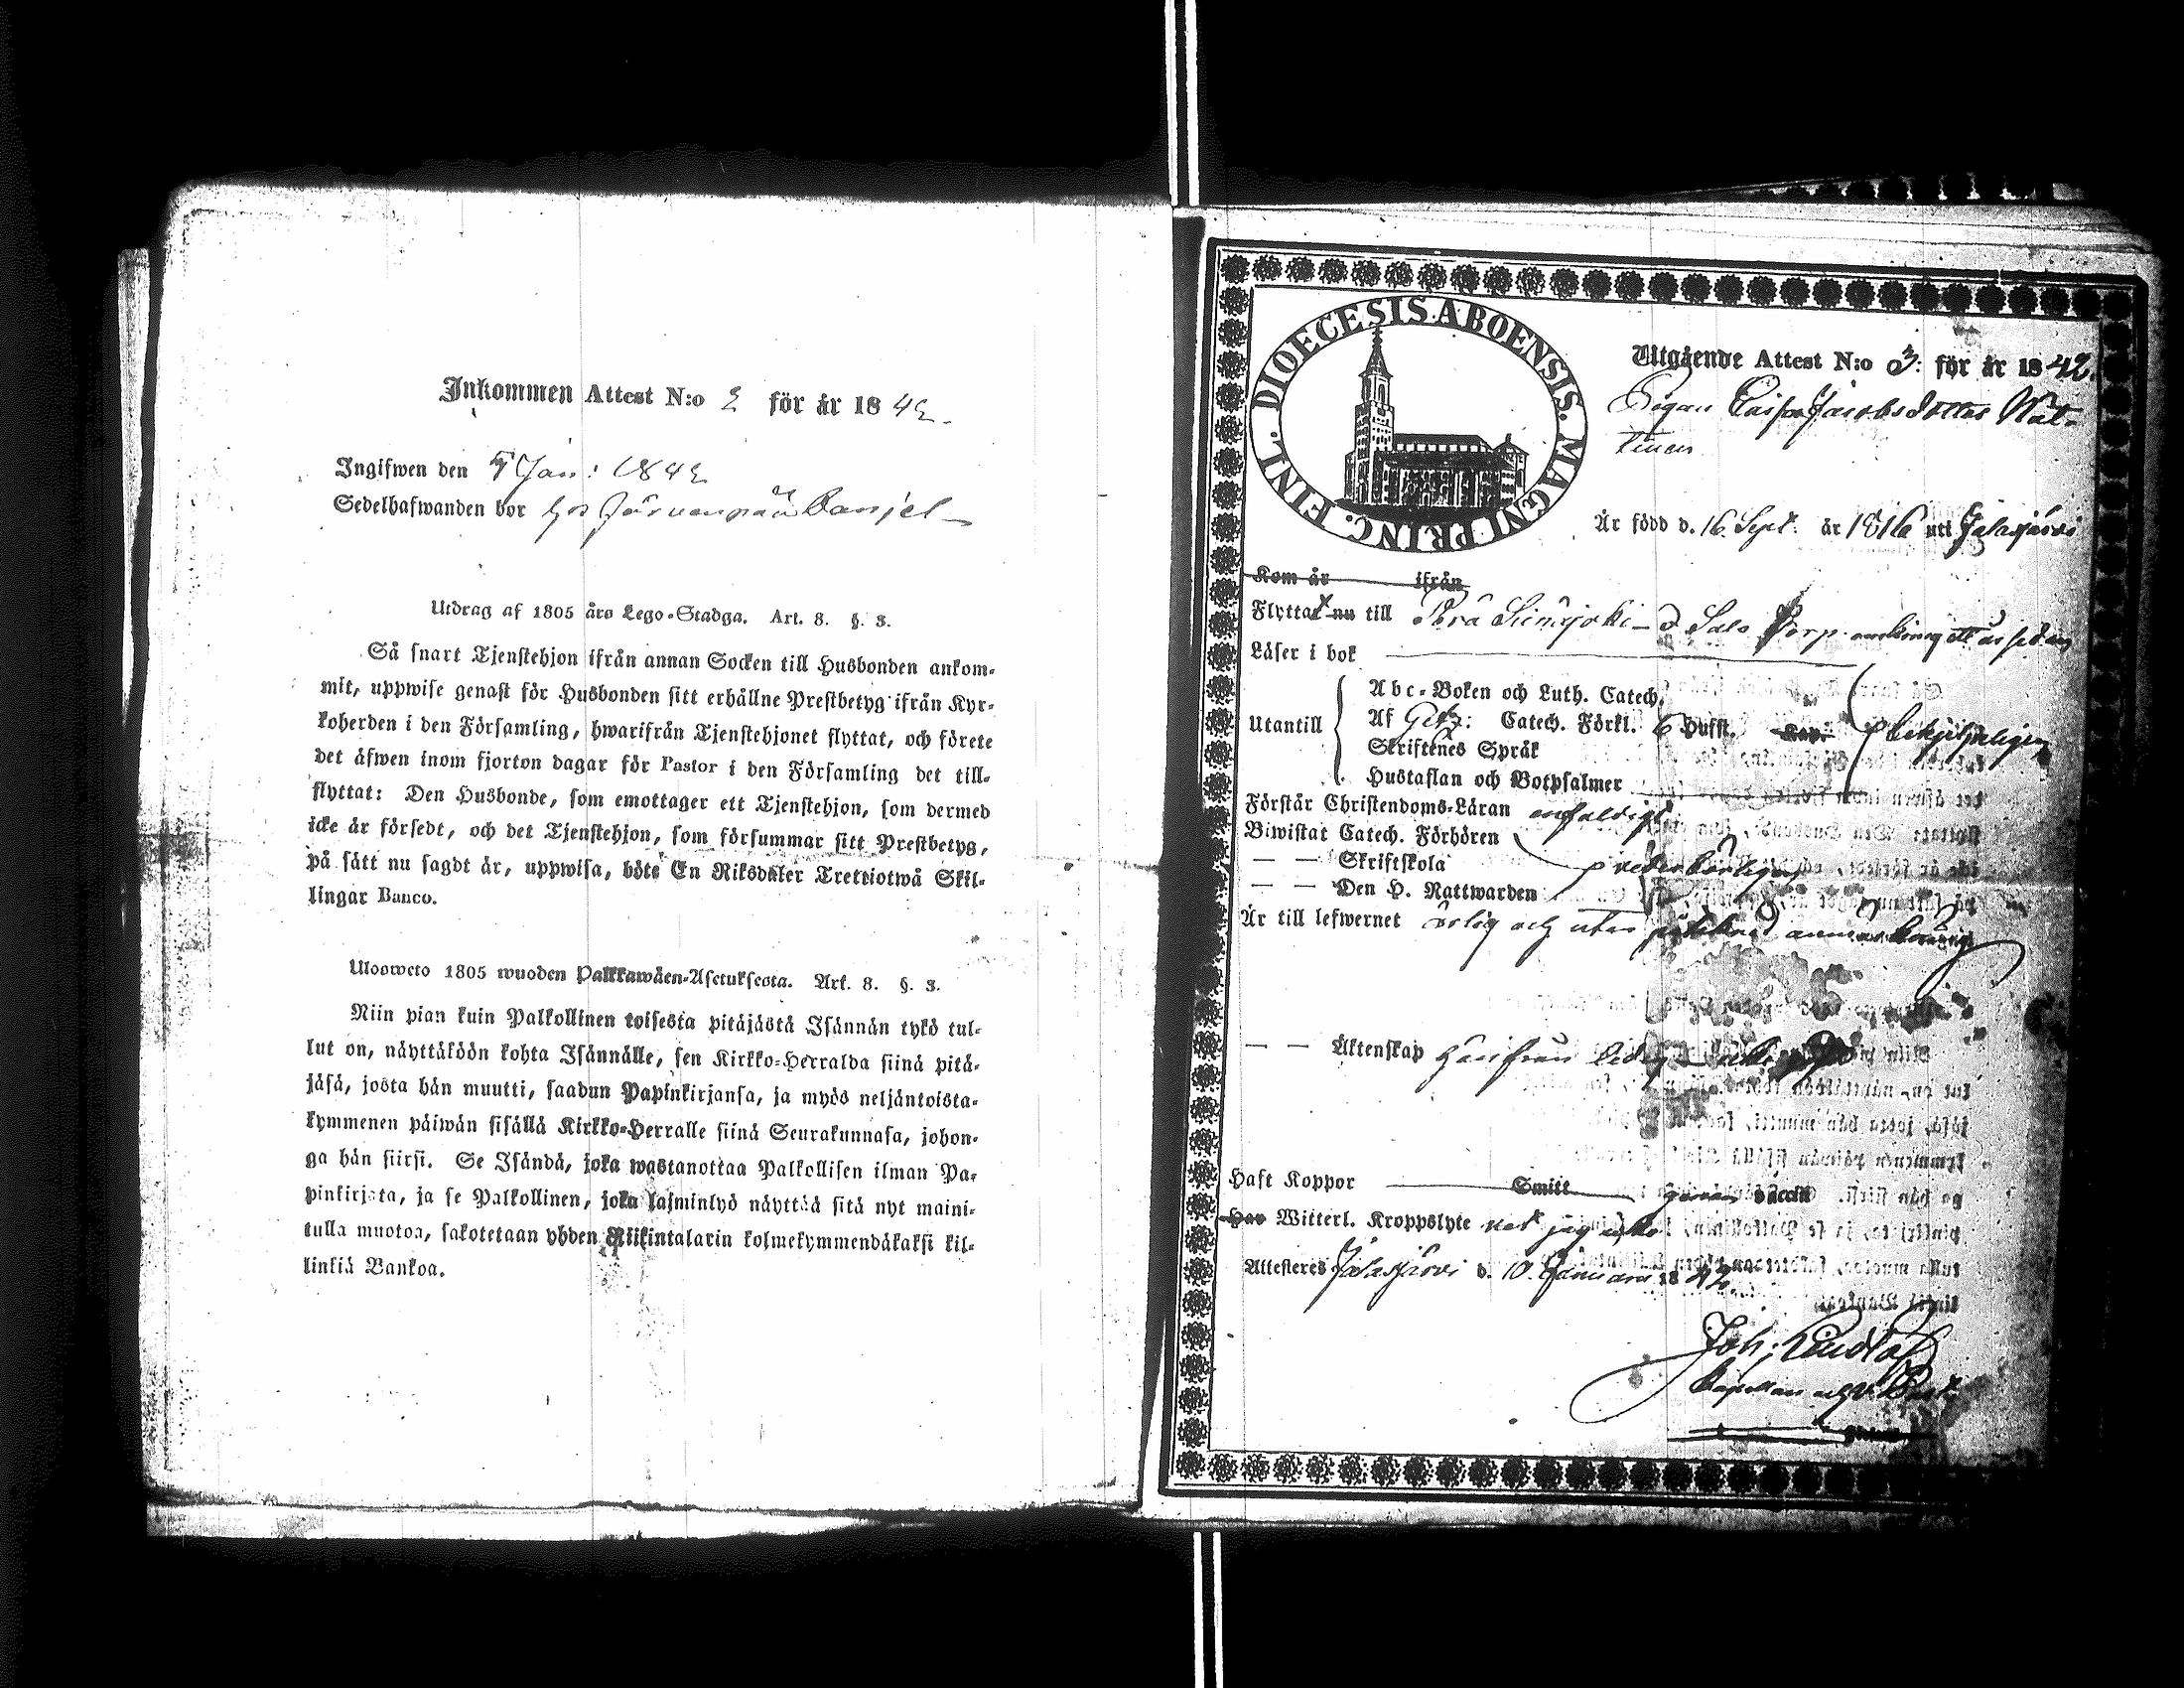 Inkommen Attest N:o 2 för år 1842
Ingifwen den Jan: 1842
Sedelhafwanden bor hos Järvenpää Danjel
Utdrag af 1805 års Lego-Stadga. Art. 8. §. 3.
Så snart Tjenstehjon ifrån annan Socken till Husbonden ankom-
mit, uppwise genast för Husbonden sitt erhållne Prestbetyg ifrån Kyr-
koherden i den Församling, hwarifrån Tjenstehjonet flyttat, och förete
det äfwen inom fjorton dagar för Pastor i den Församling det till-
flyttat: Den Husbonde, som emottager ett Tjenstehjon, som dermed
icke är försedt, och det Tjenstehjon, som försummar sitt Prestbetyg,
på sätt nu sagdt är, uppwisa, böte En Riksdaler Trettiotwå Skil-
lingar Banco.
Ulosweto 1805 wuoden Palkkawäen-Asetuksesta. Art. 8. §. 3.
Niin pian kuin Palkollinen toisesta pitäjästä Isännän tykö tul-
lut on, näyttäköön kohta Isännälle, sen Kirkko-Herralda siinä pitä-
jäsä, josta hän muutti, saadun Papinkirjansa, ja myös neljäntoista-
kymmenen päiwän sisällä Kirkko-Herralle siinä Seurakunnasa, johon-
ga hän siirsi. Se Isändä, joka wastanottaa Palkollisen ilman Pa-
pinkirjata, ja se Palkollinen, joka laiminlyö näyttää sitä nyt maini-
tulla muotoa, sakotetaan yhden Riikintalarin kolmekymmendäkaksi kil-
linkiä Bankoa.
DIOECESIS ABOENSIS. MAGNI PRINC. FINL.
Utgående Attest N:o 3. för år 1842.
Pigan Caisa Jacobsdotter
Är född d. 16 Sept. år 1816 uti Jalasjärvi
Kom år ifrån
Flyttat nu till Perä Seinäjoki Salo Torp ett år sedan
Läser i bok
Utantill
Abc-Boken och Luth. Catech.
Af Catech. Förkl. 6 Hufst. Kap.
Skriftenes Språk
Hustaflan och Botpsalmer
Förstår Christendoms-Läran enfaldigt
Biwistat Catech. Förhören
— — Skriftskola
— — Den H. Nattwarden
Är till lefwernet ärlig och utan
— — Äktenskap härifrån ledig
Haft Koppor Smitt
Har Witterl. Kroppslyte vet jag icke
Attesteres Jalasjärvi d. 10 Januari 1842.
Joh:
Capellan och v. Past.